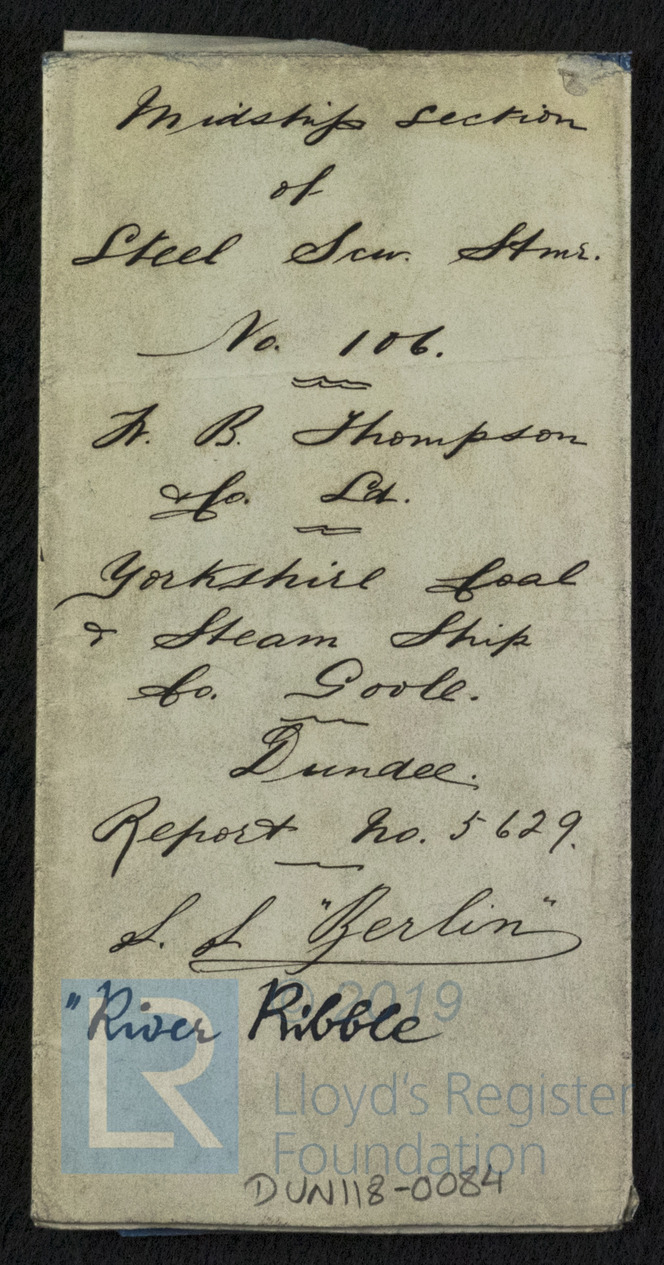 Midship Section
of
Steel Scw. Stmr.
No. 106.
W. B. Thompson
& Co. Ld.
Yorkshire Coal
& Steam Ship
Co. Goole.
Dundee.
Report No. 5629.
S. S "Berlin"
"River Ribble
© 2019
LR
Lloyd's Register
Foundation
DUN118-0084